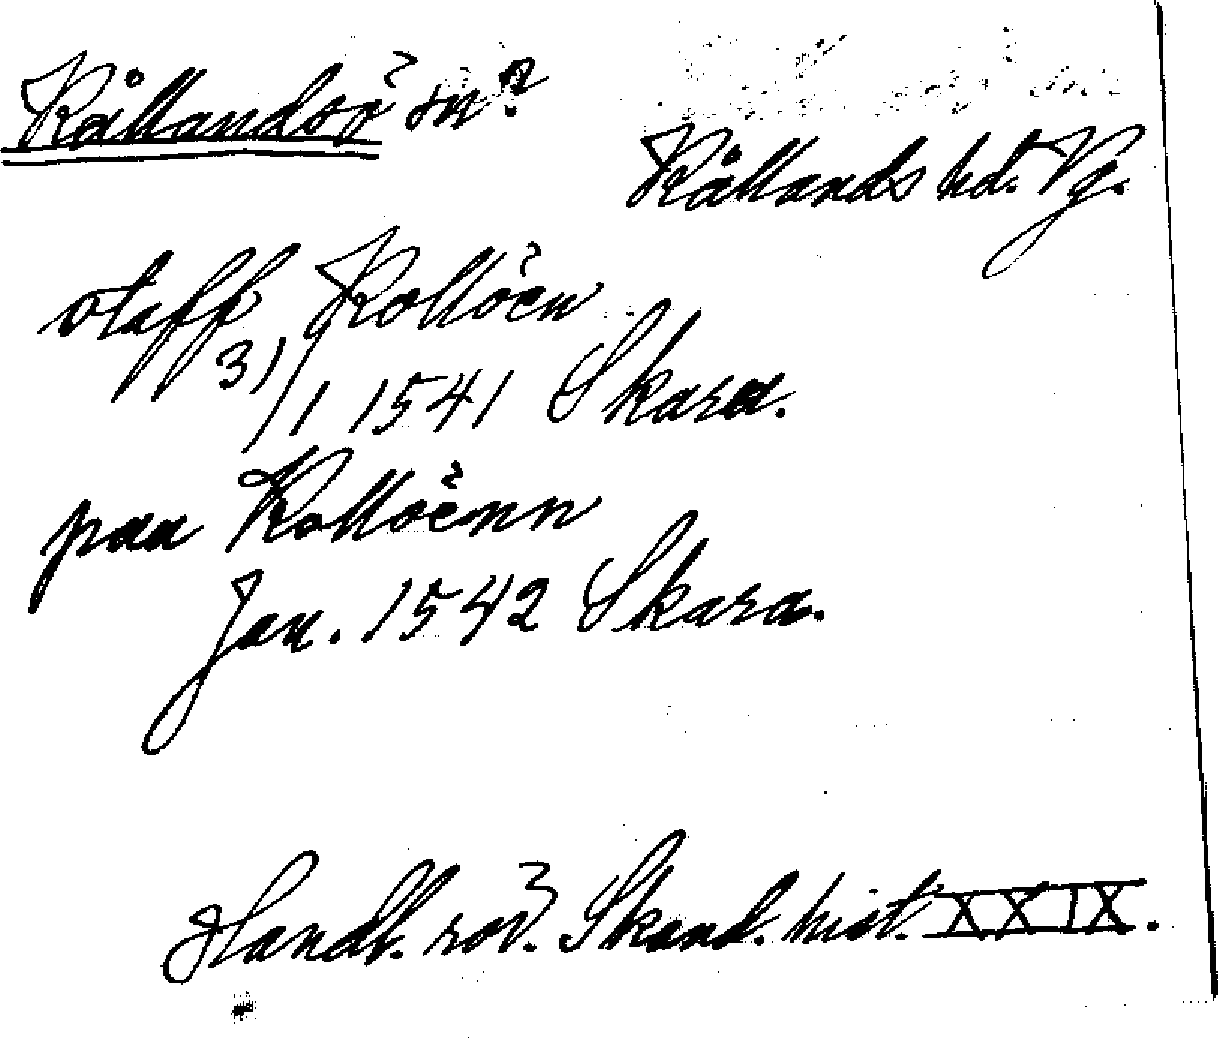 Kållandsö sn?
Kållands hd. Vg.
staff Kollöen
31/1 1541 Skara.
paa Kollöenn
Jan. 1542 Skara.
Handl. rör. Skand. hist. XXIX.